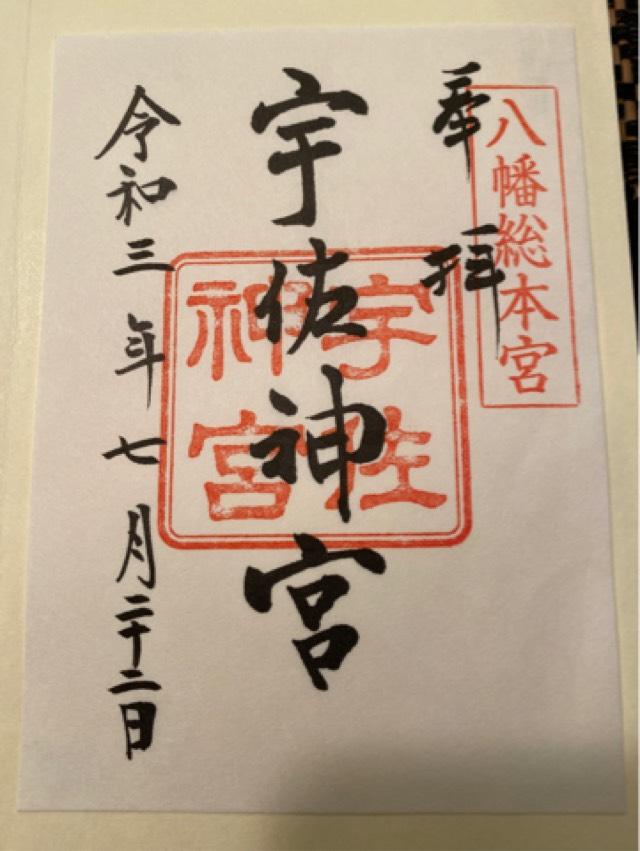 八幡総本宮
奉拝
宇佐神宮
宇佐
神宮
令和三年七月二十二日